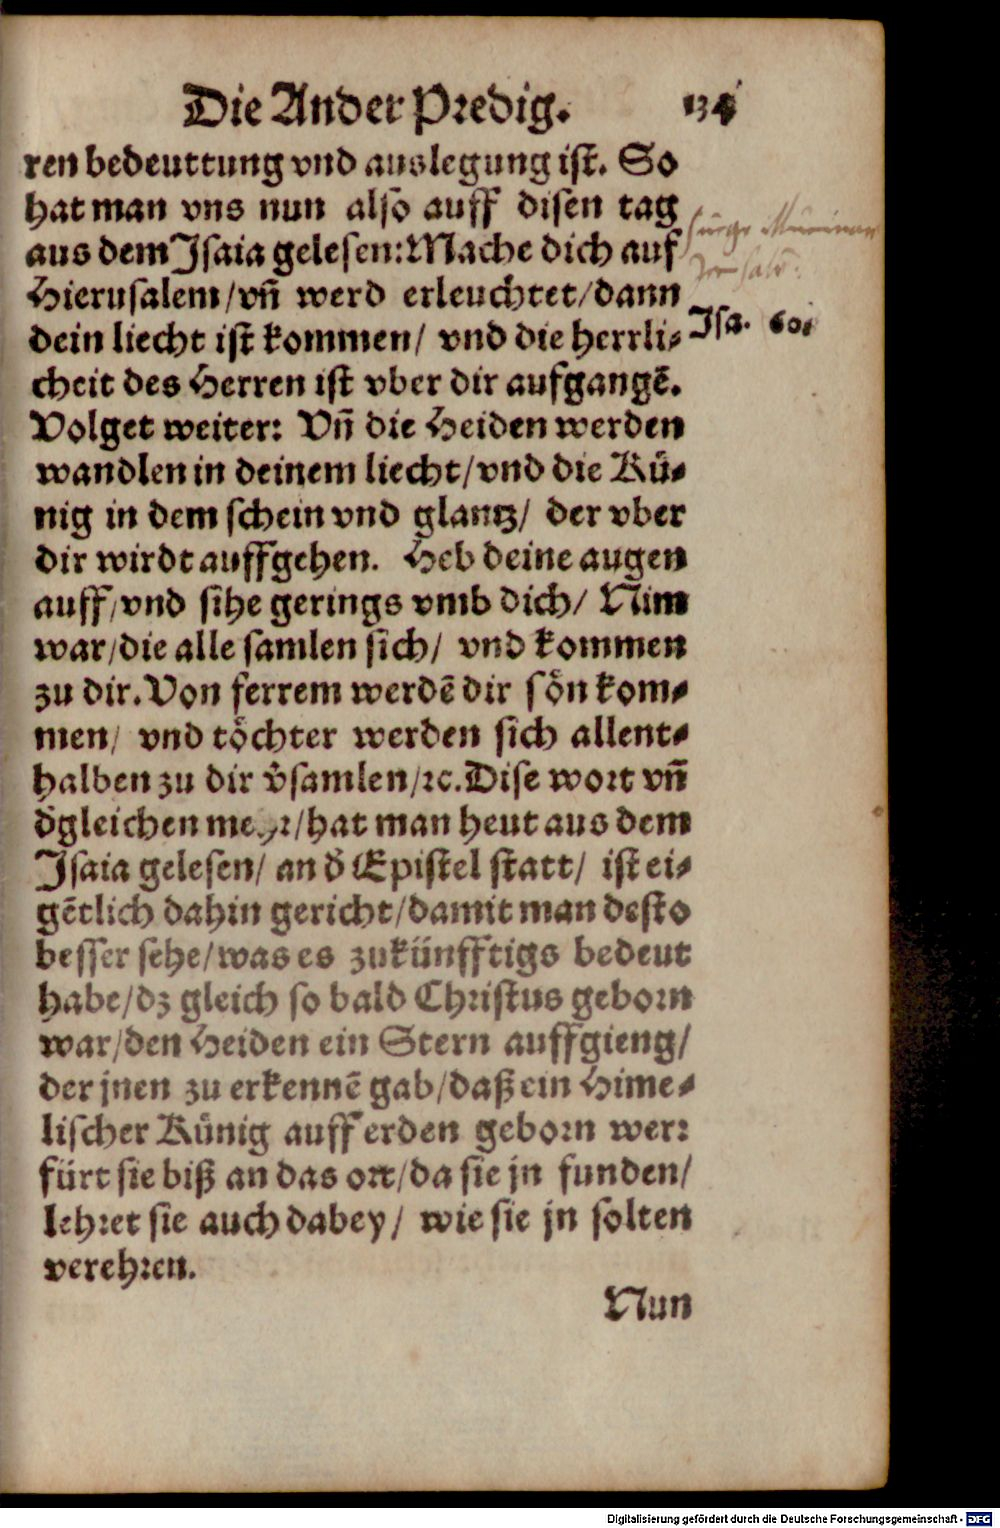 Die Ander Predig. 134
ren bedeuttung vnd auslegung ist. So
hat man vns nun also auff disen tag
aus dem Isaia gelesen: Mache dich auf
Hierusalem/vñ werd erleuchtet/dann
dein liecht ist kommen/ vnd die herrli-
Isa. 60.
cheit des Herren ist vber dir aufgangẽ.
Volget weiter: Vñ die Heiden werden
wandlen in deinem liecht/vnd die Kü-
nig in dem schein vnd glantz/ der vber
dir wirdt auffgehen. Heb deine augen
auff/vnd sihe gerings vmb dich/ Nim
war/die alle samlen sich/ vnd kommen
zu dir. Von ferrem werdẽ dir sön kom-
men/ vnd töchter werden sich allent-
halben zu dir v̈samlen/ꝛc. Dise wort vñ
d̈gleichen mehr/hat man heut aus dem
Isaia gelesen/ an d̈ Epistel statt/ ist ei-
gẽtlich dahin gericht/damit man desto
besser sehe/was es zukünfftigs bedeut
habe/dz gleich so bald Christus geborn
war/den Heiden ein Stern auffgieng/
der jnen zu erkennẽ gab/daß ein Hime-
lischer Künig auff erden geborn wer:
fürt sie biß an das ort/da sie jn funden/
lehret sie auch dabey/ wie sie jn solten
verehren.
Nun
Digitalisierung gefördert durch die Deutsche Forschungsgemeinschaft - DFG